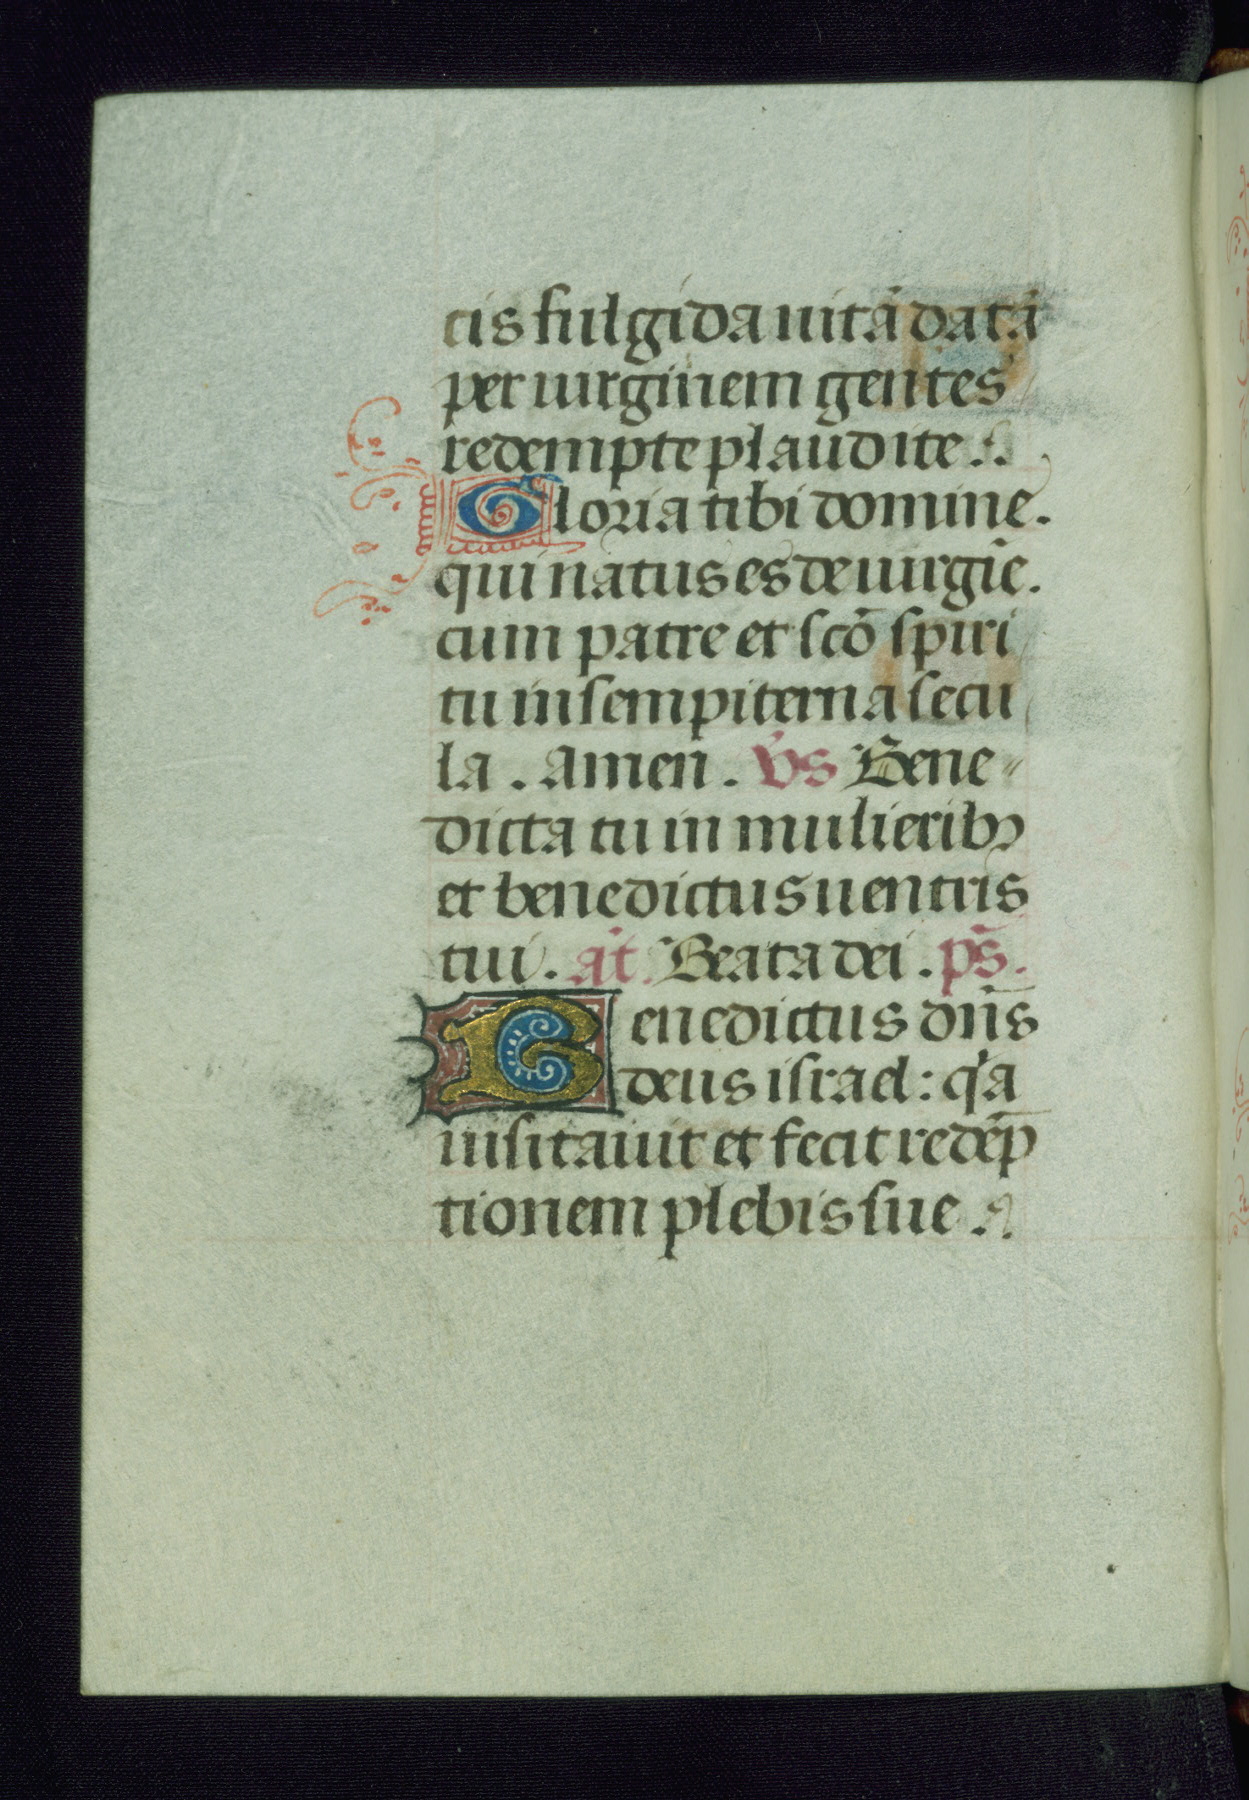 cis fulgida uitā datā
per uirginem gentes
redempte plaudite.
Gloria tibi domine.
qui natus es de uirgīe.
cum patre et scō spiri
tu in sempiterna secu
la. Amen. v̄s Bene
dicta tu in mulieribꝫ
et benedictus uentris
tui. an̄t. Beata dei. ps̄.
Benedictus dn̄s
deus israel: q̓a
uisitauit et fecit redēp
tionem plebis sue.